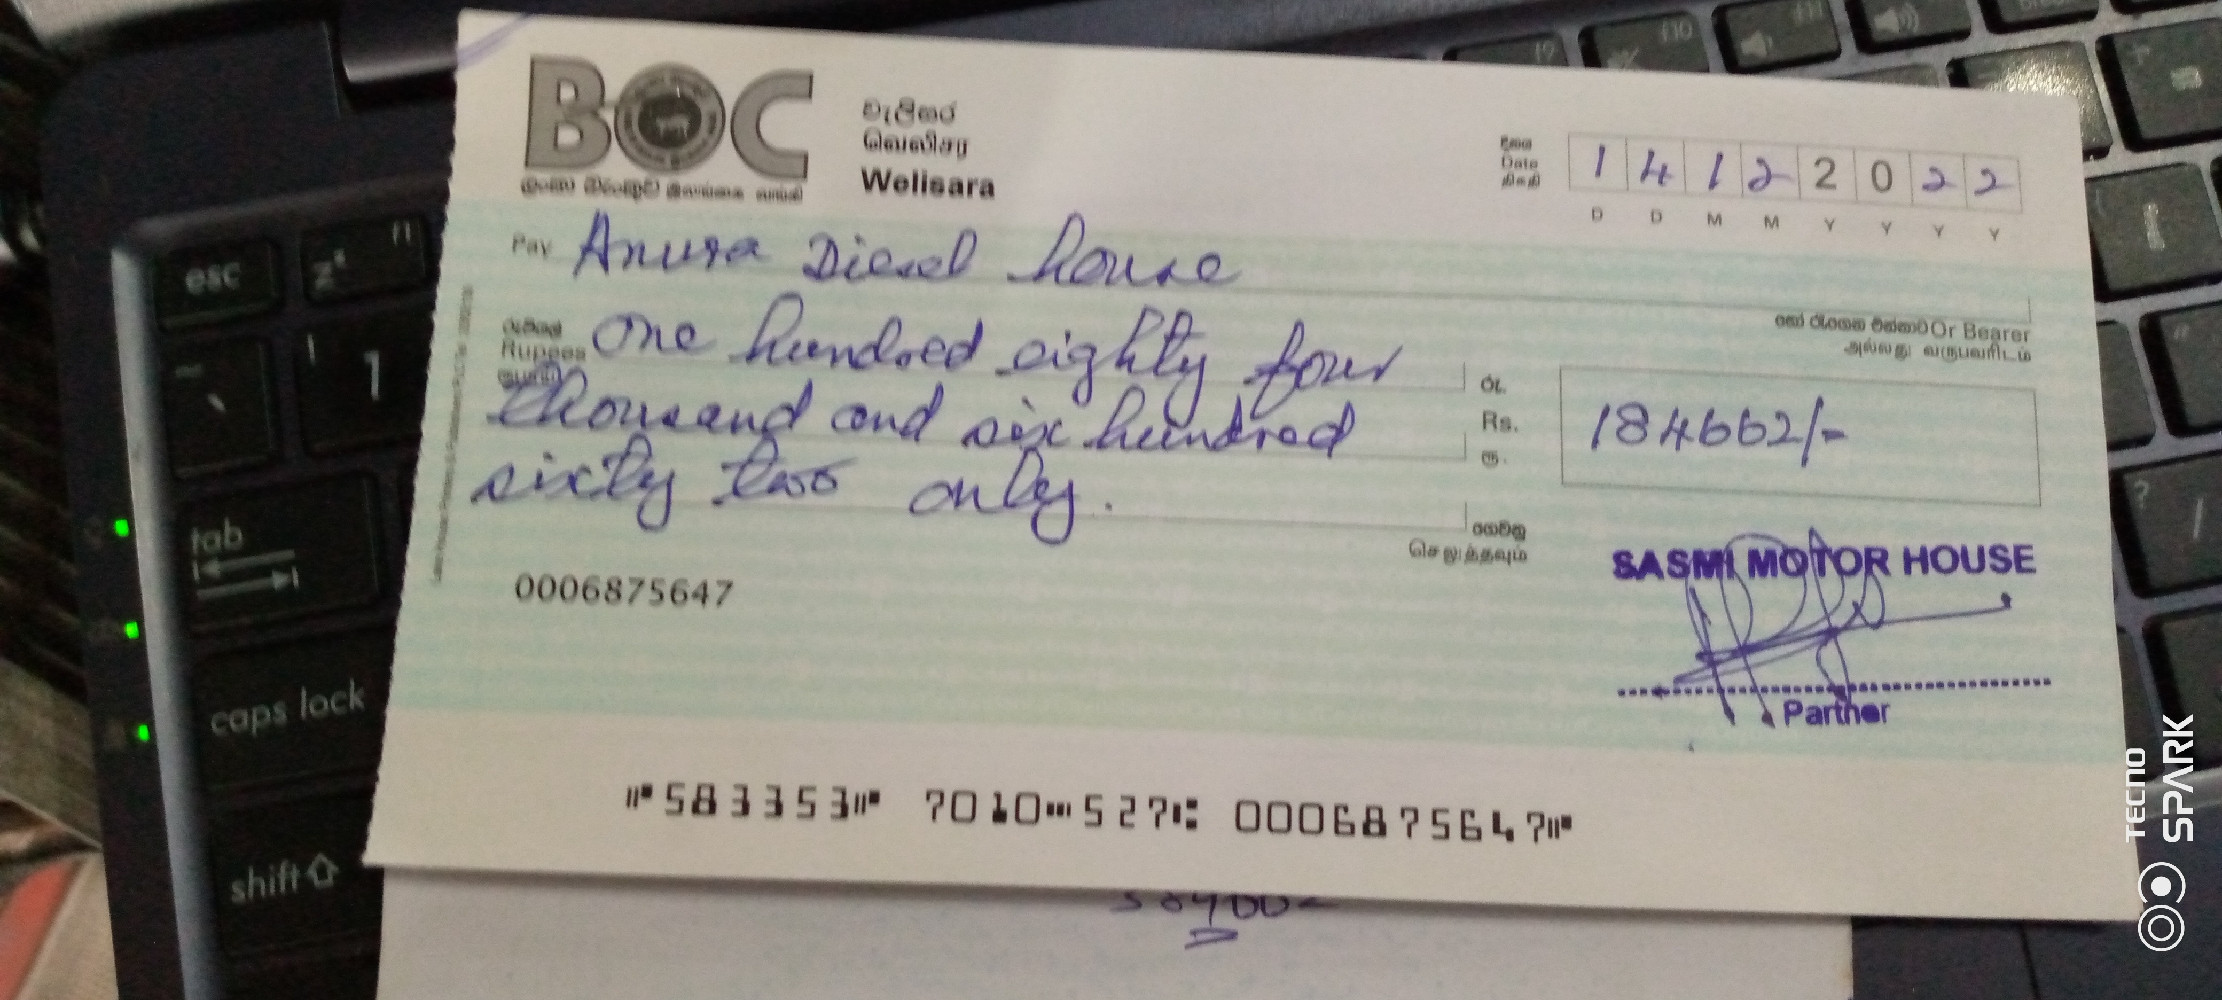 BOC
වැලිසර
வெலிசற
Welisara
දිනය
Date
திகதி
1 4 1 2 2 0 2 2
D D M M Y Y Y Y
Pay Anura Diesel house
හෝ රැගෙන එන්නාට Or Bearer
அல்லது வருபவரிடம்
රුපියල්
Rupees
ரூபாய்
one hundred eighty four
thousand and six hundred
sixty two only.
රු.
Rs.
ரூ.
184662/-
ගෙවනු
செலுத்தவும்
SASMI MOTOR HOUSE
Partner
0006875647
⑈583353⑈ 7010⑉527⑆ 0006875647⑈
esc
f1
z
f9
f10
f11
1
tab
caps lock
shift
?
/
TECNO
SPARK